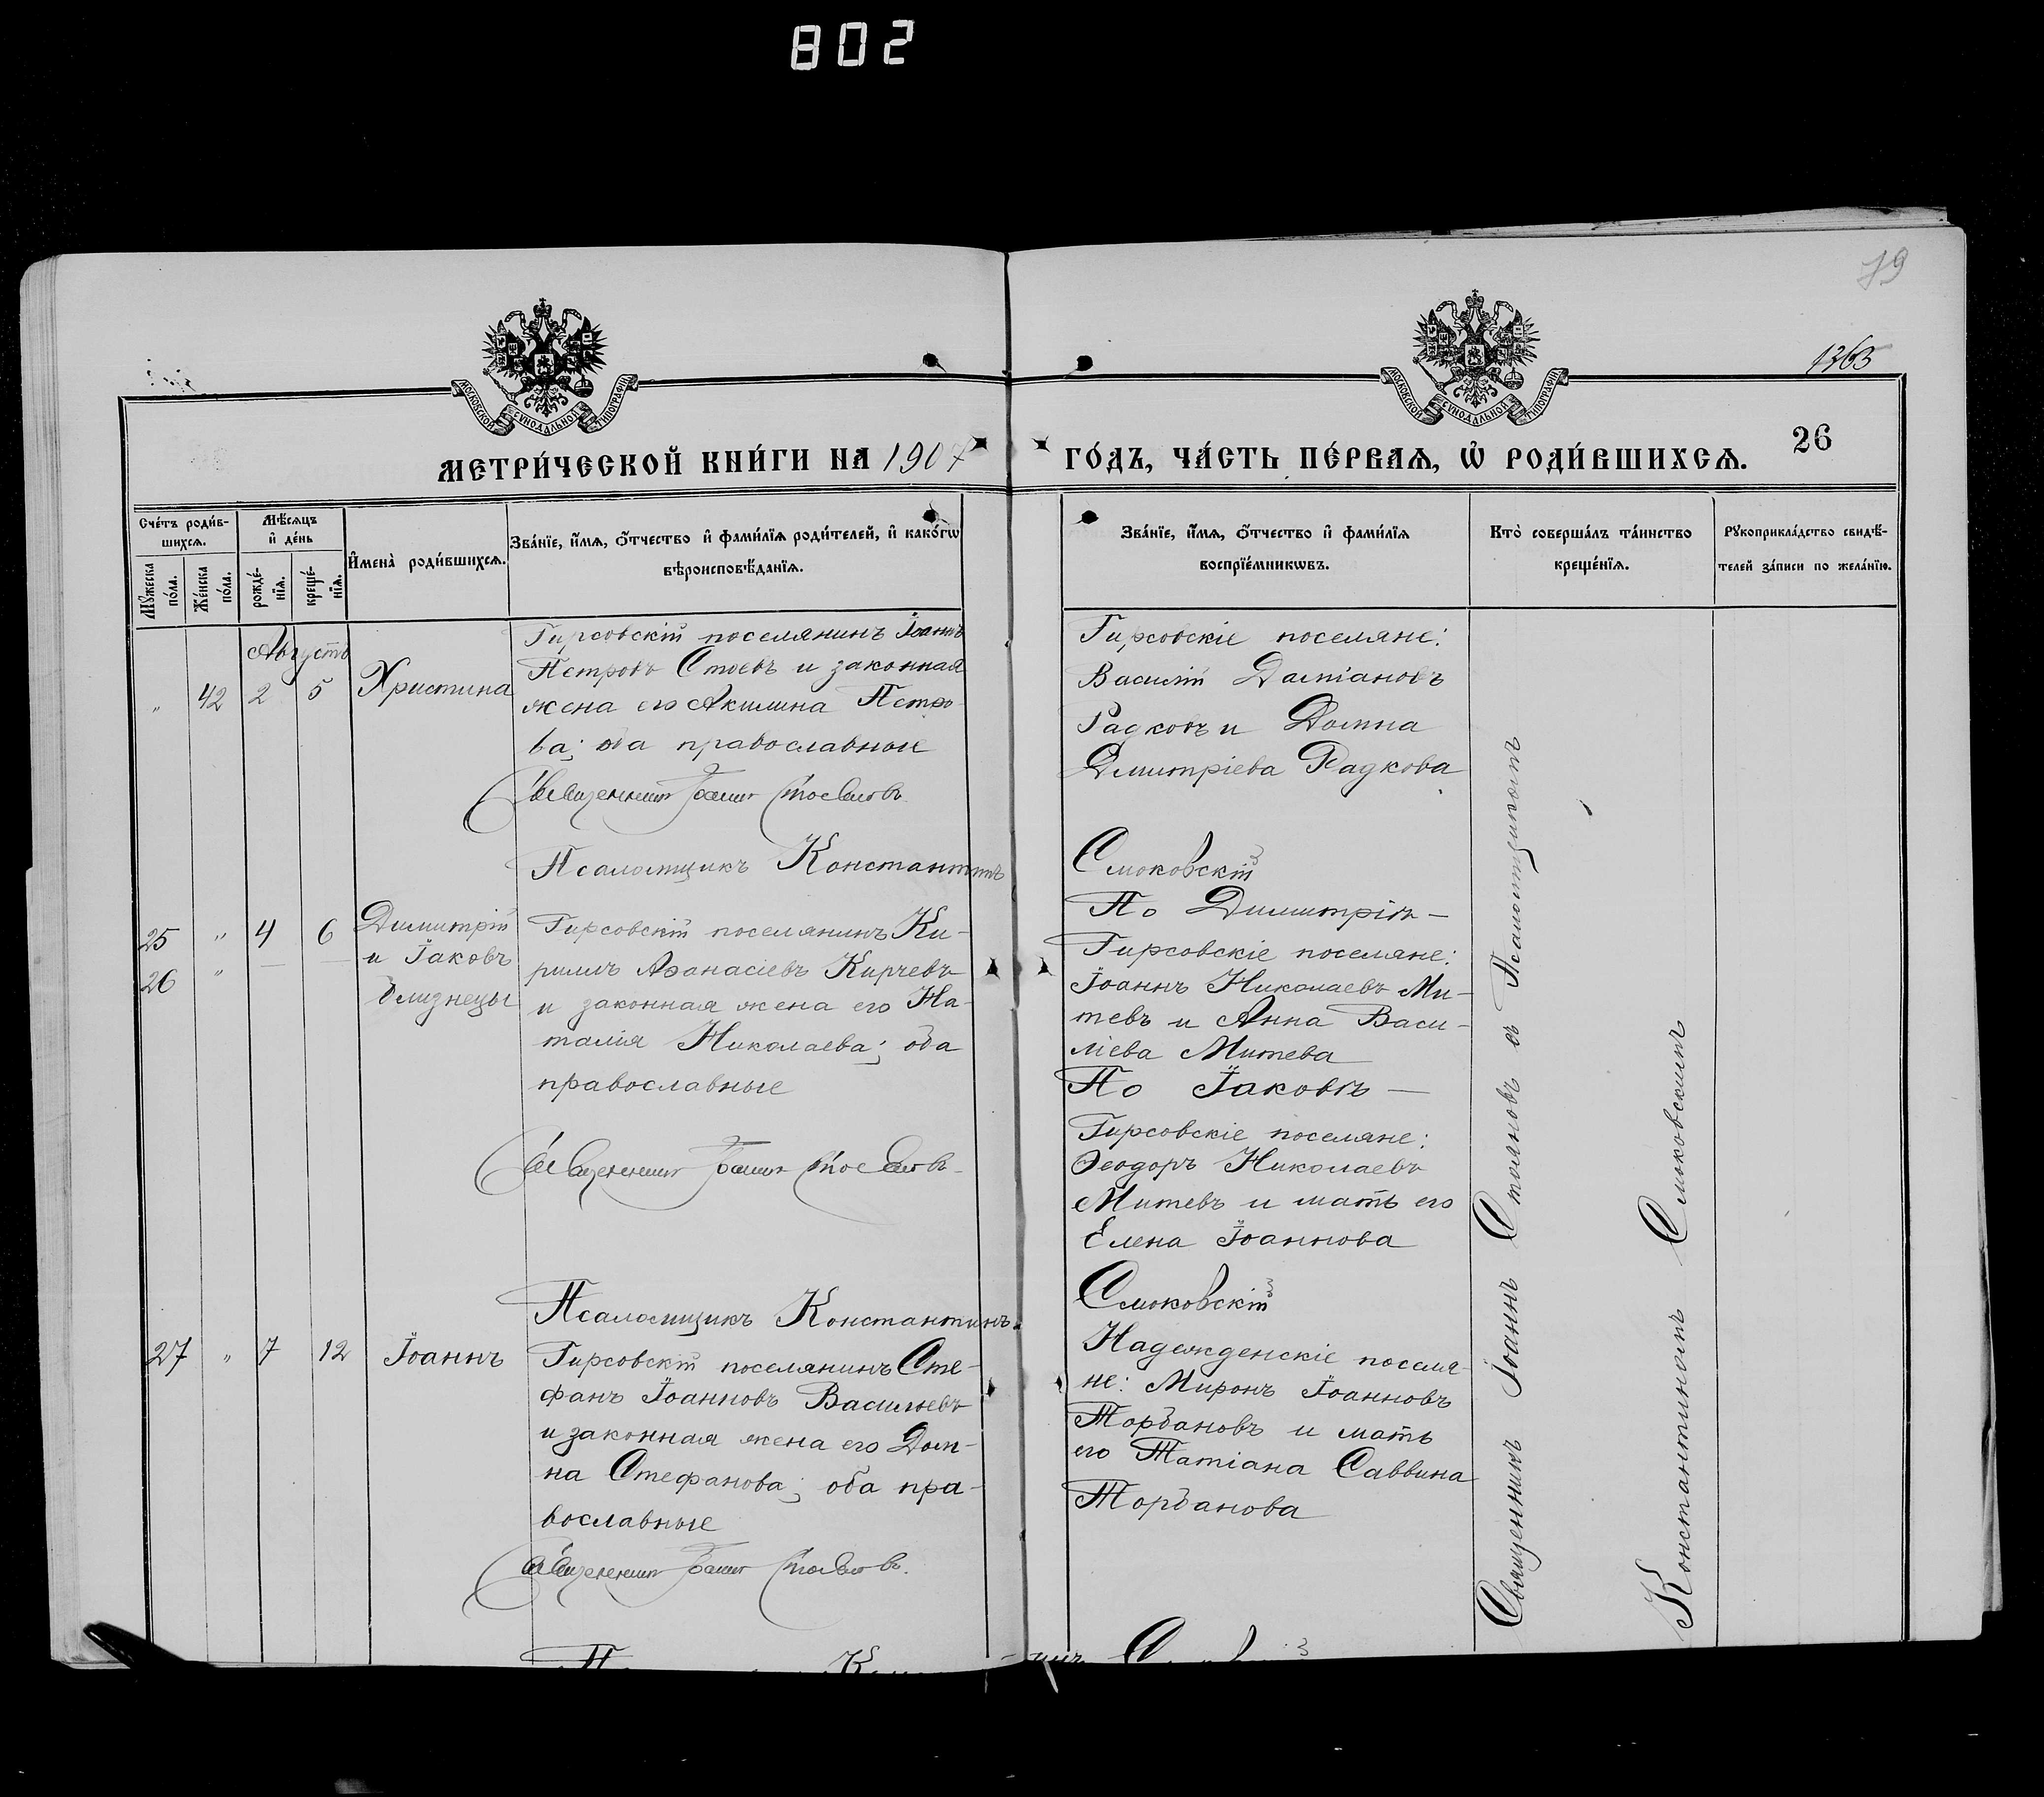 802
19
1365
МОСКОВСКОЙ СѴНОДАЛЬНОЙ ТИПОГРАФІИ
МОСКОВСКОЙ СѴНОДАЛЬНОЙ ТИПОГРАФІИ
МЕТРИ́ЧЕСКОЙ КНИ́ГИ НА 1907
ГО́ДЪ, ЧА́СТЬ ПЕ́РВАѦ, Ѡ҆ РОДИ́ВШИХСѦ.
26
Сче́тъ роди́в-
шихсѧ.
Мѣ́сѧцъ
и҆ де́нь
Мꙋ́жеска
по́ла.
Же́нска
по́ла.
рожде́-
нїѧ.
креще́-
нїѧ.
И҆мена̀ роди́вшихсѧ.
Зва́нїе, и҆́мѧ, ѻ҆́тчество и҆ фами́лїѧ роди́телей, и҆ како́гѡ
вѣроисповѣ́данїѧ.
Зва́нїе, и҆́мѧ, ѻ҆́тчество и҆ фами́лїѧ
воспрїе́мникѡвъ.
Кто̀ соверша́лъ та́инство
креще́нїѧ.
Рꙋкоприкла́дство свидѣ́-
телей за́писи по жела́нїю.
Августъ
" 42 2 5 Христина
Гирсовскій поселянинъ Іоаннъ
Петровъ Стоевъ и законная
жена его Акилина Петро-
ва; оба православные
Священникъ Іоаннъ Стояновъ
Псаломщикъ Константинъ
Гирсовскіе поселяне:
Василій Даміановъ
Радковъ и Домна
Димитріева Радкова
Смоковскій
25 " 4 6 Димитрій
26 " — — и Іаковъ
близнецы
Гирсовскій поселянинъ Ки-
риллъ Аѳанасіевъ Кирчевъ
и законная жена его На-
талія Николаева; оба
православные
Священникъ Іоаннъ Стояновъ
Псаломщикъ Константинъ
По Димитріѣ —
Гирсовскіе поселяне:
Іоаннъ Николаевъ Ми-
тевъ и Анна Васи-
ліева Митева
По Іаковѣ —
Гирсовскіе поселяне:
Ѳеодоръ Николаевъ
Митевъ и мать его
Елена Іоаннова
Смоковскій
27 " 7 12 Іоаннъ
Гирсовскій поселянинъ Сте-
фанъ Іоанновъ Васильевъ
и законная жена его Дом-
на Стефанова; оба пра-
вославные
Священникъ Іоаннъ Стояновъ.
Надежденскіе поселя-
не: Миронъ Іоанновъ
Торбановъ и мать
его Татіана Саввина
Торбанова
Священникъ Іоаннъ Стояновъ съ Псаломщикомъ
Константиномъ Смоковскимъ